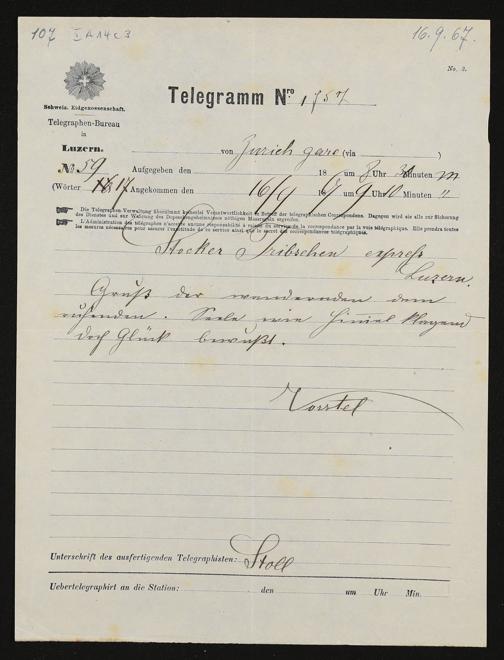 107 I A 14 c 3
16. 9. 67.
No. 2.
Telegramm Nro 1757
Schweiz. Eidgenossenschaft.
Telegraphen-Bureau
in
Luzern.
von Zurich gare (via )
№ 59 Aufgegeben den 18 um 8 Uhr Minuten m
(Wörter 17 Angekommen den 16/9 18 um 9 Uhr 10 Minuten "
Die Telegraphen-Verwaltung übernimmt keinerlei Verantwortlichkeit in Betreff der telegraphischen Correspondenz. Dagegen wird sie alle zur Sicherung
des Dienstes und zur Wahrung des Depeschengeheimnisses nöthigen Massregeln ergreifen.
L'Administration des télégraphes n'accepte aucune responsabilité à raison du service de la correspondance par la voie télégraphique. Elle prendra toutes
les mesures nécessaires pour assurer l'exactitude de ce service ainsi que le secret des correspondances télégraphiques.
Stocker Tribschen express
Luzern.
Gruß der wandernden dem
ruhenden. Seele wie Himel klagend
doch Glück bewußt.
Vorstel
Unterschrift des ausfertigenden Telegraphisten: Stoll
Uebertelegraphirt an die Station: den um Uhr Min.